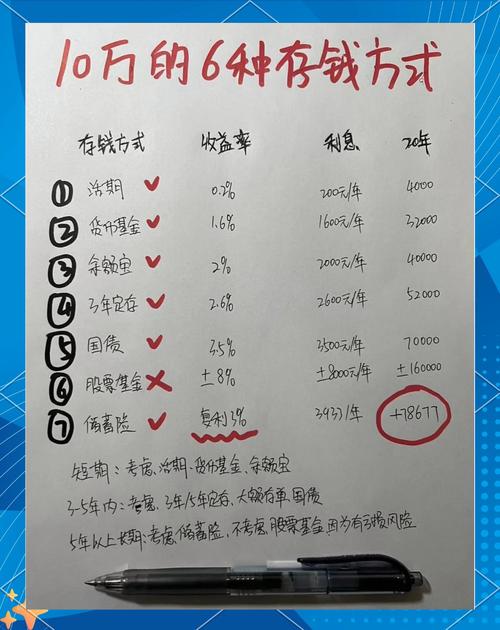 10万的6种存钱方式
存钱方式 收益率 利息 20年
① 活期 ✓ 0.2% 200元/年 4000
② 货币基金 ✓ 1.6% 1600元/年 32000
③ 余额宝 ✓ 2% 2000元/年 40000
④ 3年定存 ✓ 2.6% 2600元/年 52000
⑤ 国债 ✓ 3.5% 3500元/年 70000
⑥ 股票基金 ✗ ±8% ±8000元/年 ±160000
⑦ 储蓄险 ✓ 复利3% 3933/年 +78677
短期：考虑，活期.货币基金、余额宝
3-5年内：考虑，3年/5年定存，大额存单，国债
5年以上长期：考虑储蓄险，不考虑股票基金因为有亏损风险